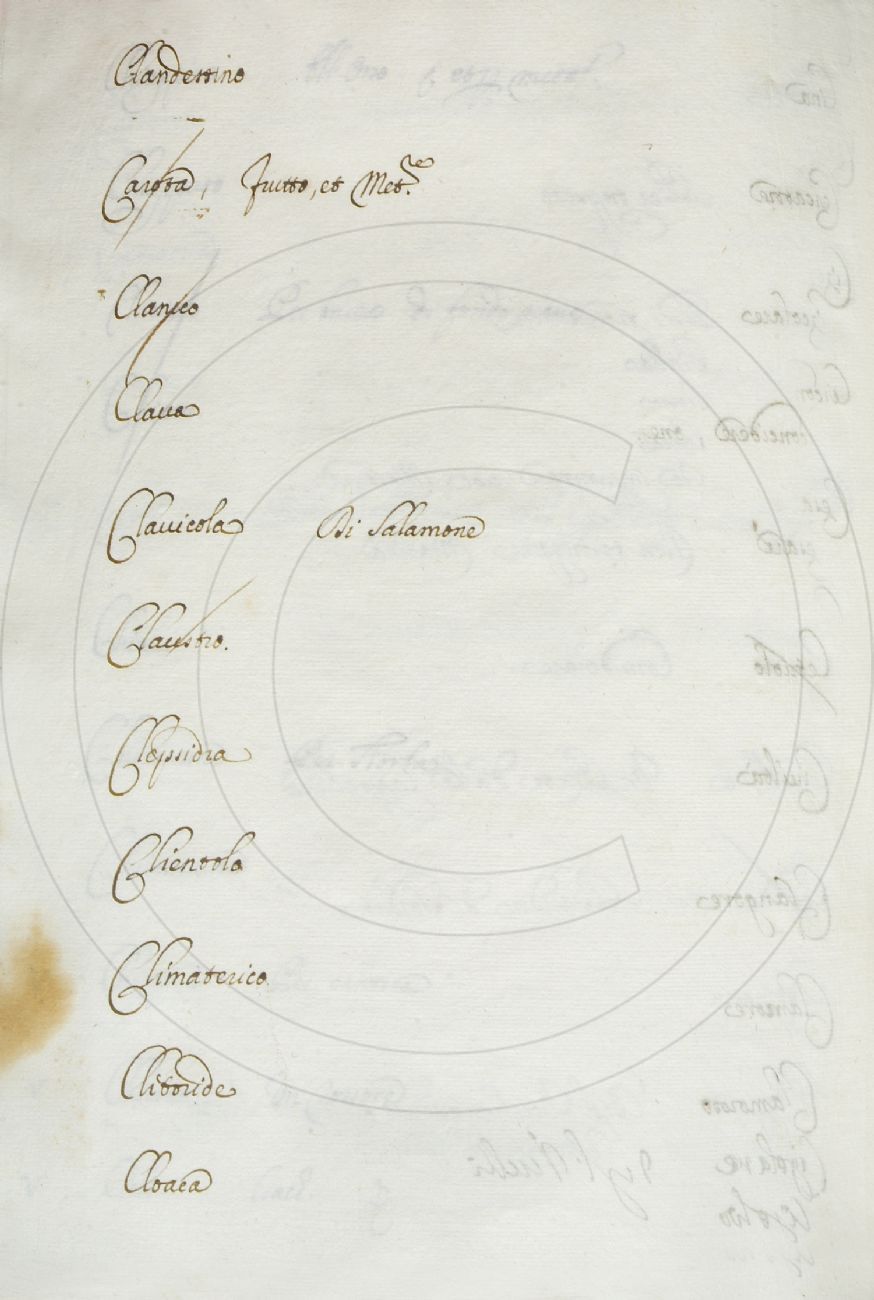 Clandestino
Carota, frutto, et Met.re
Clanico
Claua
Clauicola Di Salamone
Claustro.
Clepsidra
Clientolo
Climaterico
Clitoride
Cloaca